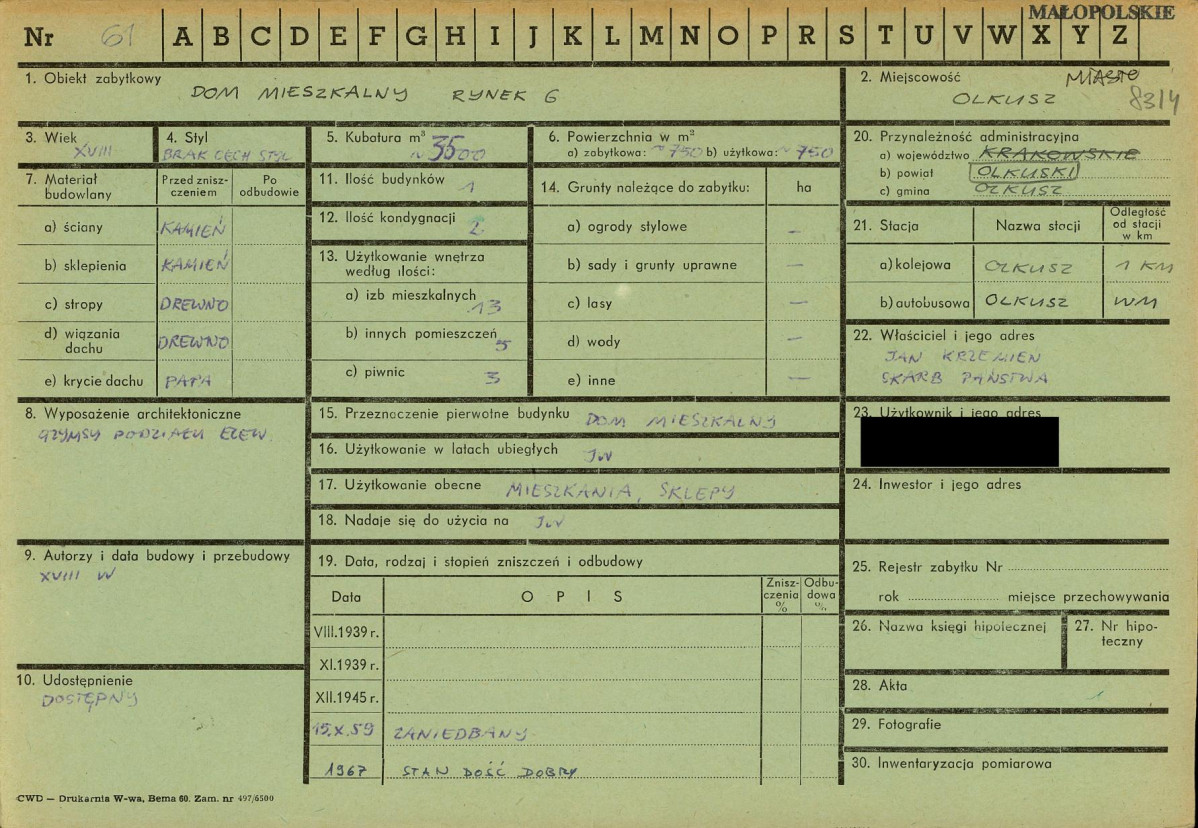 MAŁOPOLSKIE
Nr 61 A B C D E F G H I J K L M N O P R S T U V W X Y Z
1. Obiekt zabytkowy
DOM MIESZKALNY RYNEK 6
2. Miejscowość MIASTO
OLKUSZ 8314
3. Wiek
XVIII
4. Styl
BRAK CECH STYL
5. Kubatura m³
~ 3500
6. Powierzchnia w m²
a) zabytkowa: ~ 750 b) użytkowa: ~ 750
7. Materiał budowlany
Przed znisz-
czeniem
Po
odbudowie
a) ściany KAMIEŃ
b) sklepienia KAMIEŃ
c) stropy DREWNO
d) wiązania
dachu DREWNO
e) krycie dachu PAPA
8. Wyposażenie architektoniczne
GZYMSY PODZIAŁU ELEW.
9. Autorzy i data budowy i przebudowy
XVIII W
10. Udostępnienie
DOSTĘPNY
11. Ilość budynków 1
12. Ilość kondygnacji 2
13. Użytkowanie wnętrza
według ilości:
a) izb mieszkalnych 13
b) innych pomieszczeń 5
c) piwnic 3
14. Grunty należące do zabytku: ha
a) ogrody stylowe —
b) sady i grunty uprawne —
c) lasy —
d) wody —
e) inne —
15. Przeznaczenie pierwotne budynku DOM MIESZKALNY
16. Użytkowanie w latach ubiegłych JW
17. Użytkowanie obecne MIESZKANIA, SKLEPY
18. Nadaje się do użycia na J.W
19. Data, rodzaj i stopień zniszczeń i odbudowy
Data
OPIS
Znisz-
czenia
%
Odbu-
dowa
%
VIII.1939 r.
XI.1939 r.
XII.1945 r.
15.X.59 ZANIEDBANY
1967 STAN DOŚĆ DOBRY
20. Przynależność administracyjna
a) województwo KRAKOWSKIE
b) powiat OLKUSKI
c) gmina OLKUSZ
21. Stacja
Nazwa stacji
Odległość
od stacji
w km
a) kolejowa OLKUSZ 1 KM
b) autobusowa OLKUSZ WM
22. Właściciel i jego adres
JAN KRZEMIEN
SKARB PAŃSTWA
23. Użytkownik i jego adres
24. Inwestor i jego adres
25. Rejestr zabytku Nr
rok miejsce przechowywania
26. Nazwa księgi hipotecznej
27. Nr hipo-
teczny
28. Akta
29. Fotografie
30. Inwentaryzacja pomiarowa
CWD — Drukarnia W-wa, Bema 60. Zam. nr 497/6500